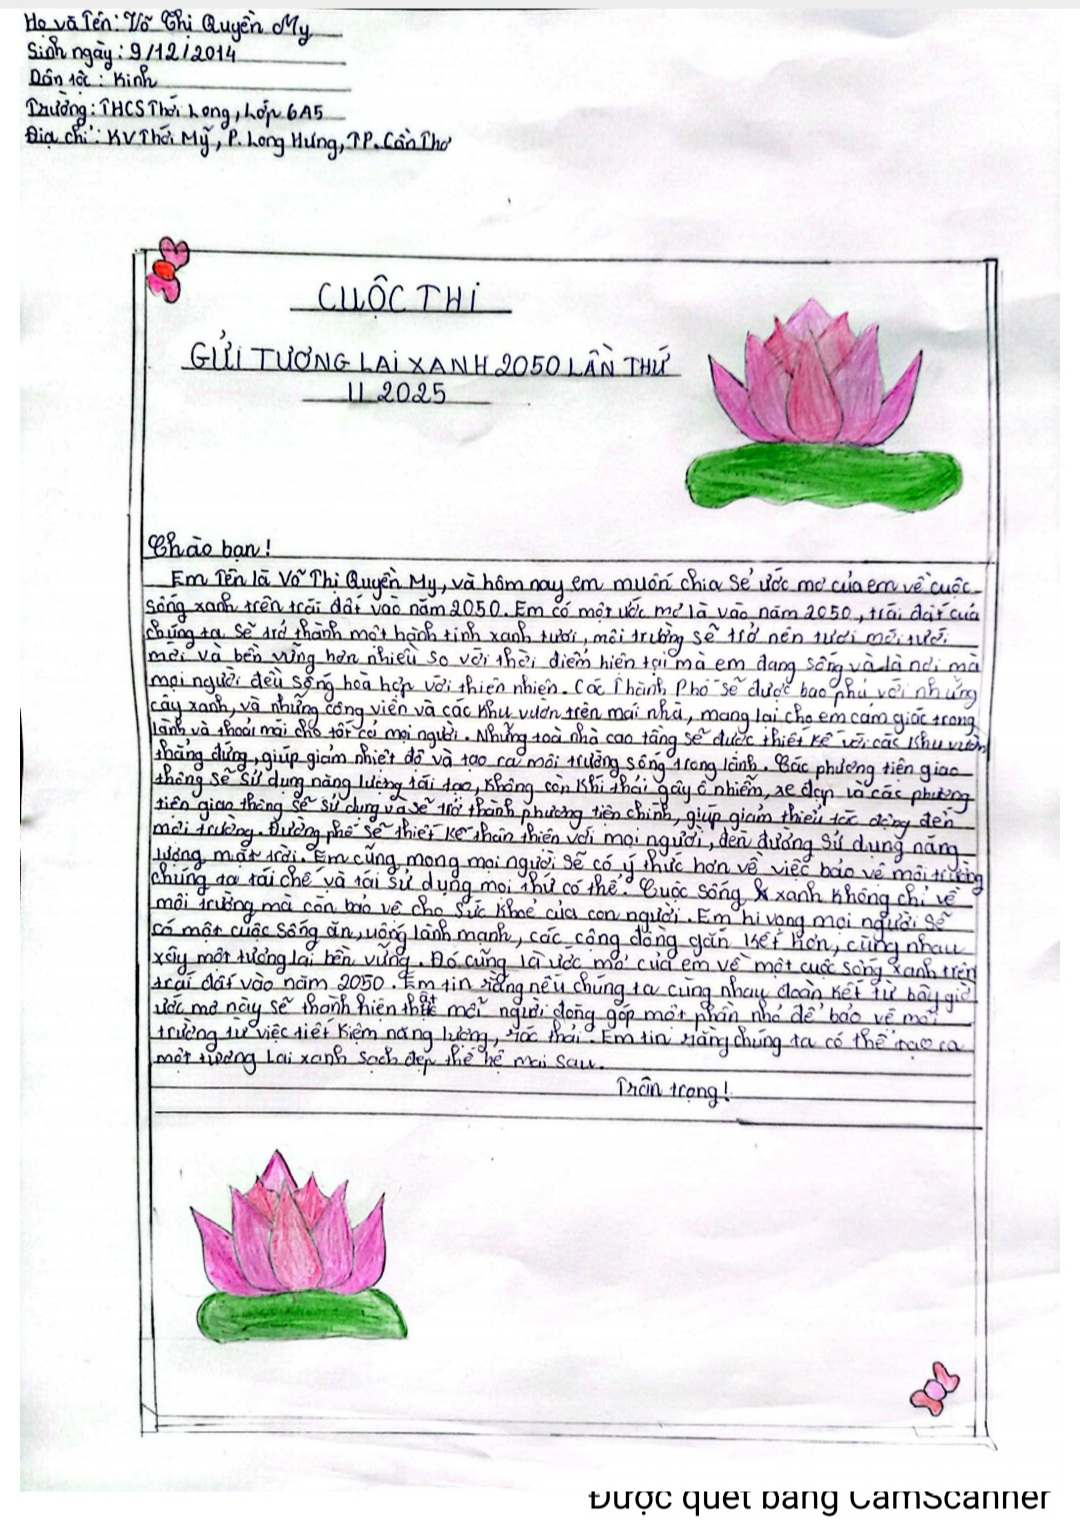 Họ và Tên: Võ Thị Quyền My
Sinh ngày: 9/12/2014
Dân tộc: Kinh
Trường: THCS Thới Long, Lớp 6A5
Địa chỉ: KV Thới Mỹ, P. Long Hưng, TP. Cần Thơ
CUỘC THI
GỬI TƯƠNG LAI XANH 2050 LẦN THỨ
II 2025
Chào bạn!
Em Tên là Võ Thị Quyền My, và hôm nay em muốn chia sẻ ước mơ của em về cuộc
sống xanh trên trái đất vào năm 2050. Em có một ước mơ là vào năm 2050, trái đất của
chúng ta sẽ trở thành một hành tinh xanh tươi, môi trường sẽ trở nên tươi mới tươi
mới và bền vững hơn nhiều so với thời điểm hiện tại mà em đang sống và là nơi mà
mọi người đều sống hoà hợp với thiên nhiên. Các Thành Phố sẽ được bao phủ với những
cây xanh, và những công viên và các khu vườn trên mái nhà, mang lại cho em cảm giác trong
lành và thoải mái cho tất cả mọi người. Những toà nhà cao tầng sẽ được thiết kế với các khu vườn
thẳng đứng, giúp giảm nhiệt độ và tạo ra môi trường sống trong lành. Các phương tiện giao
thông sẽ sử dụng năng lượng tái tạo, không còn khí thải gây ô nhiễm, xe đạp và các phương
tiện giao thông sẽ sử dụng và sẽ trở thành phương tiện chính, giúp giảm thiểu tác động đến
môi trường. Đường phố sẽ thiết kế thân thiện với mọi người, đèn đường sử dụng năng
lượng mặt trời. Em cũng mong mọi người sẽ có ý thức hơn về việc bảo vệ môi trường
chúng ta tái chế và tái sử dụng mọi thứ có thể. Cuộc sống xanh không chỉ về
môi trường mà còn bảo vệ cho sức khoẻ của con người. Em hi vọng mọi người sẽ
có một cuộc sống ăn, uống lành mạnh, các cộng đồng gắn kết hơn, cùng nhau
xây một tương lai bền vững. Đó cũng là ước mơ của em về một cuộc sống xanh trên
trái đất vào năm 2050. Em tin rằng nếu chúng ta cùng nhay đoàn kết từ bây giờ
ước mơ này sẽ thành hiện thật mỗi người đóng góp một phần nhỏ để bảo vệ môi
trường từ việc tiết kiệm năng lượng, rác thải. Em tin rằng chúng ta có thể tạo ra
một tương lai xanh sạch đẹp thế hệ mai sau.
Trân trọng!
Được quét bằng CamScanner